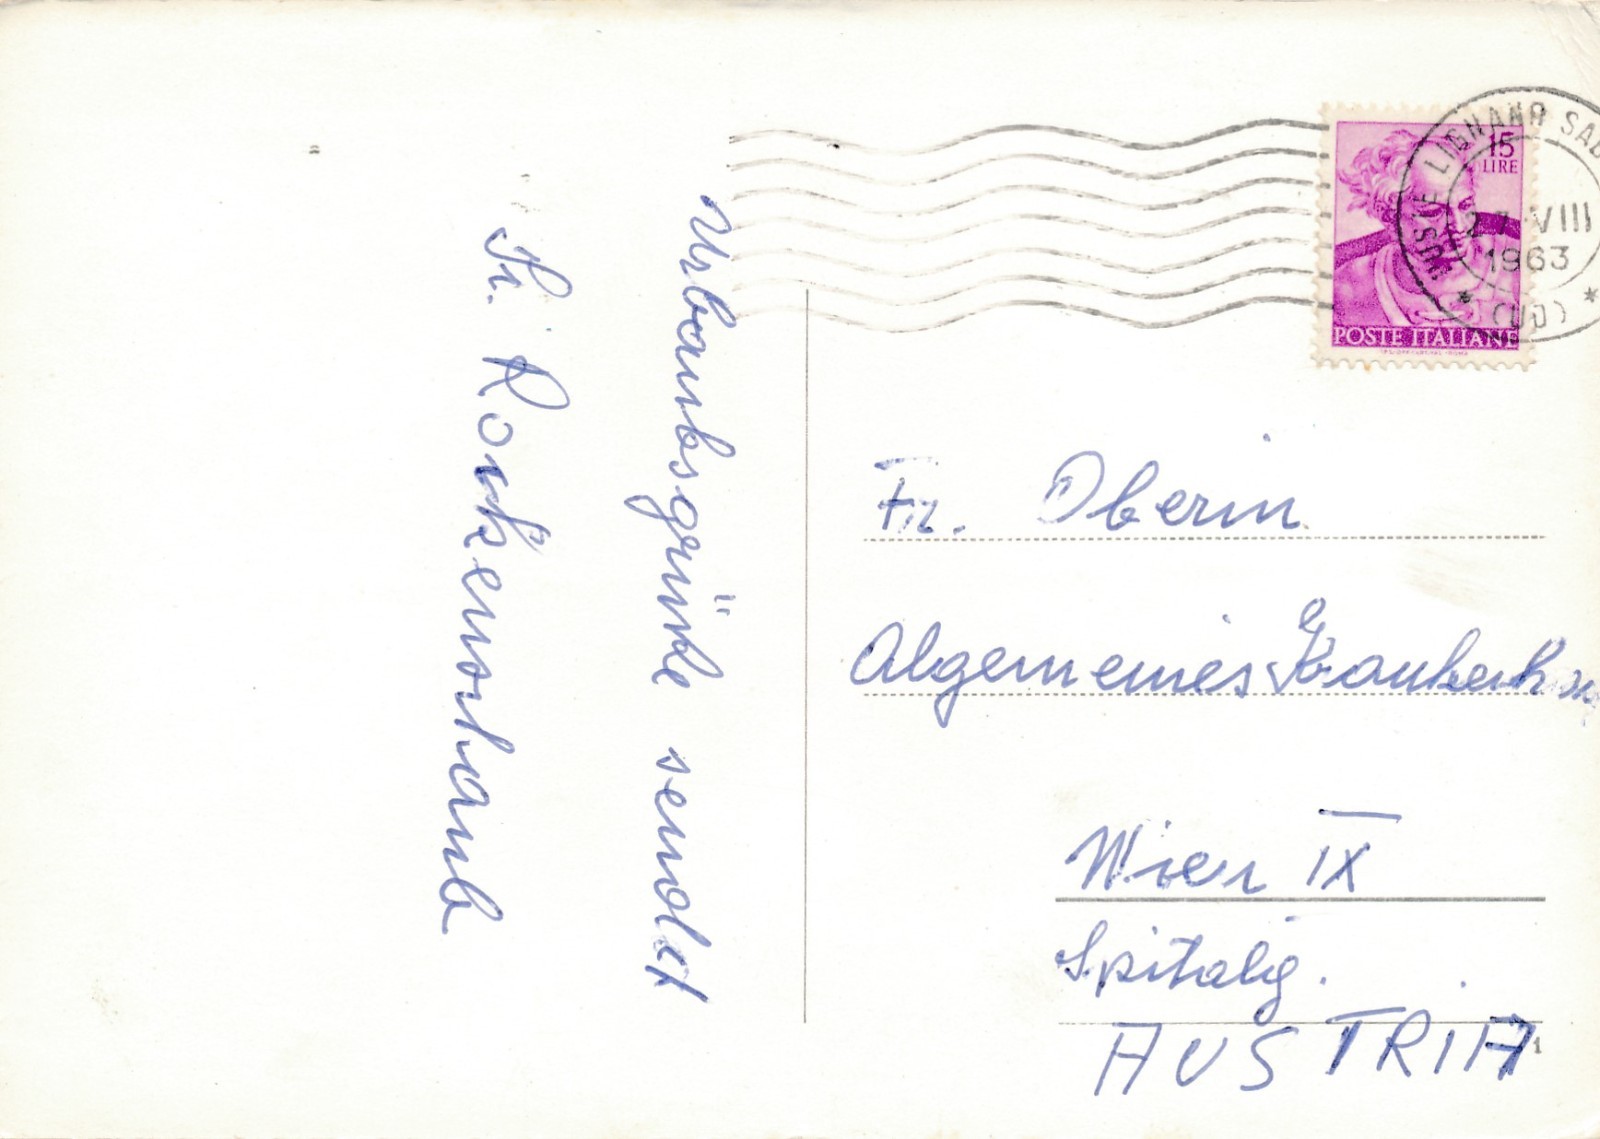 Urlaubsgrüße sendet
Sr. Rockenschaub
15
LIRE
POSTE ITALIANE
LIGNANO SAB
27 VIII
1963
(UD)
Fr. Oberin
Algemeines Krankenh
Wien IX
Spitalg.
AUSTRIA
1